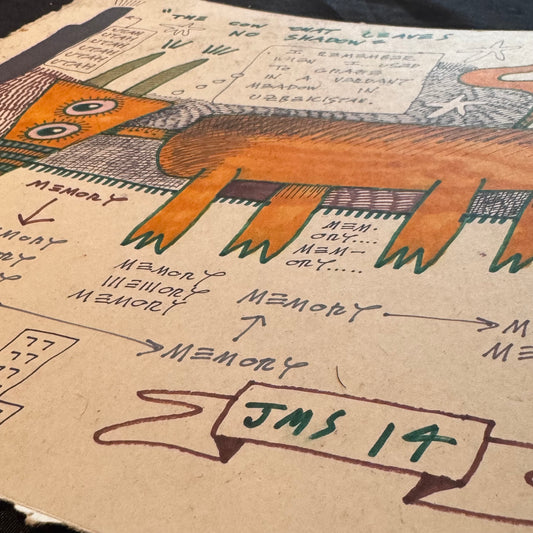 "THE COW THAT LEAVES
NO SHADOW"
UTAH
UTAH
UTAH
UTAH
I REMEMBER
WHEN I USED
TO GRAZE
IN A VERDANT
MEADOW IN
UZBEKISTAN.
MEMORY
MEMORY
MEM.
ORY....
MEM—
ORY.....
MEMORY
MEMORY
MEMORY
MEMORY
MEMORY
77
77
77
JMS 14